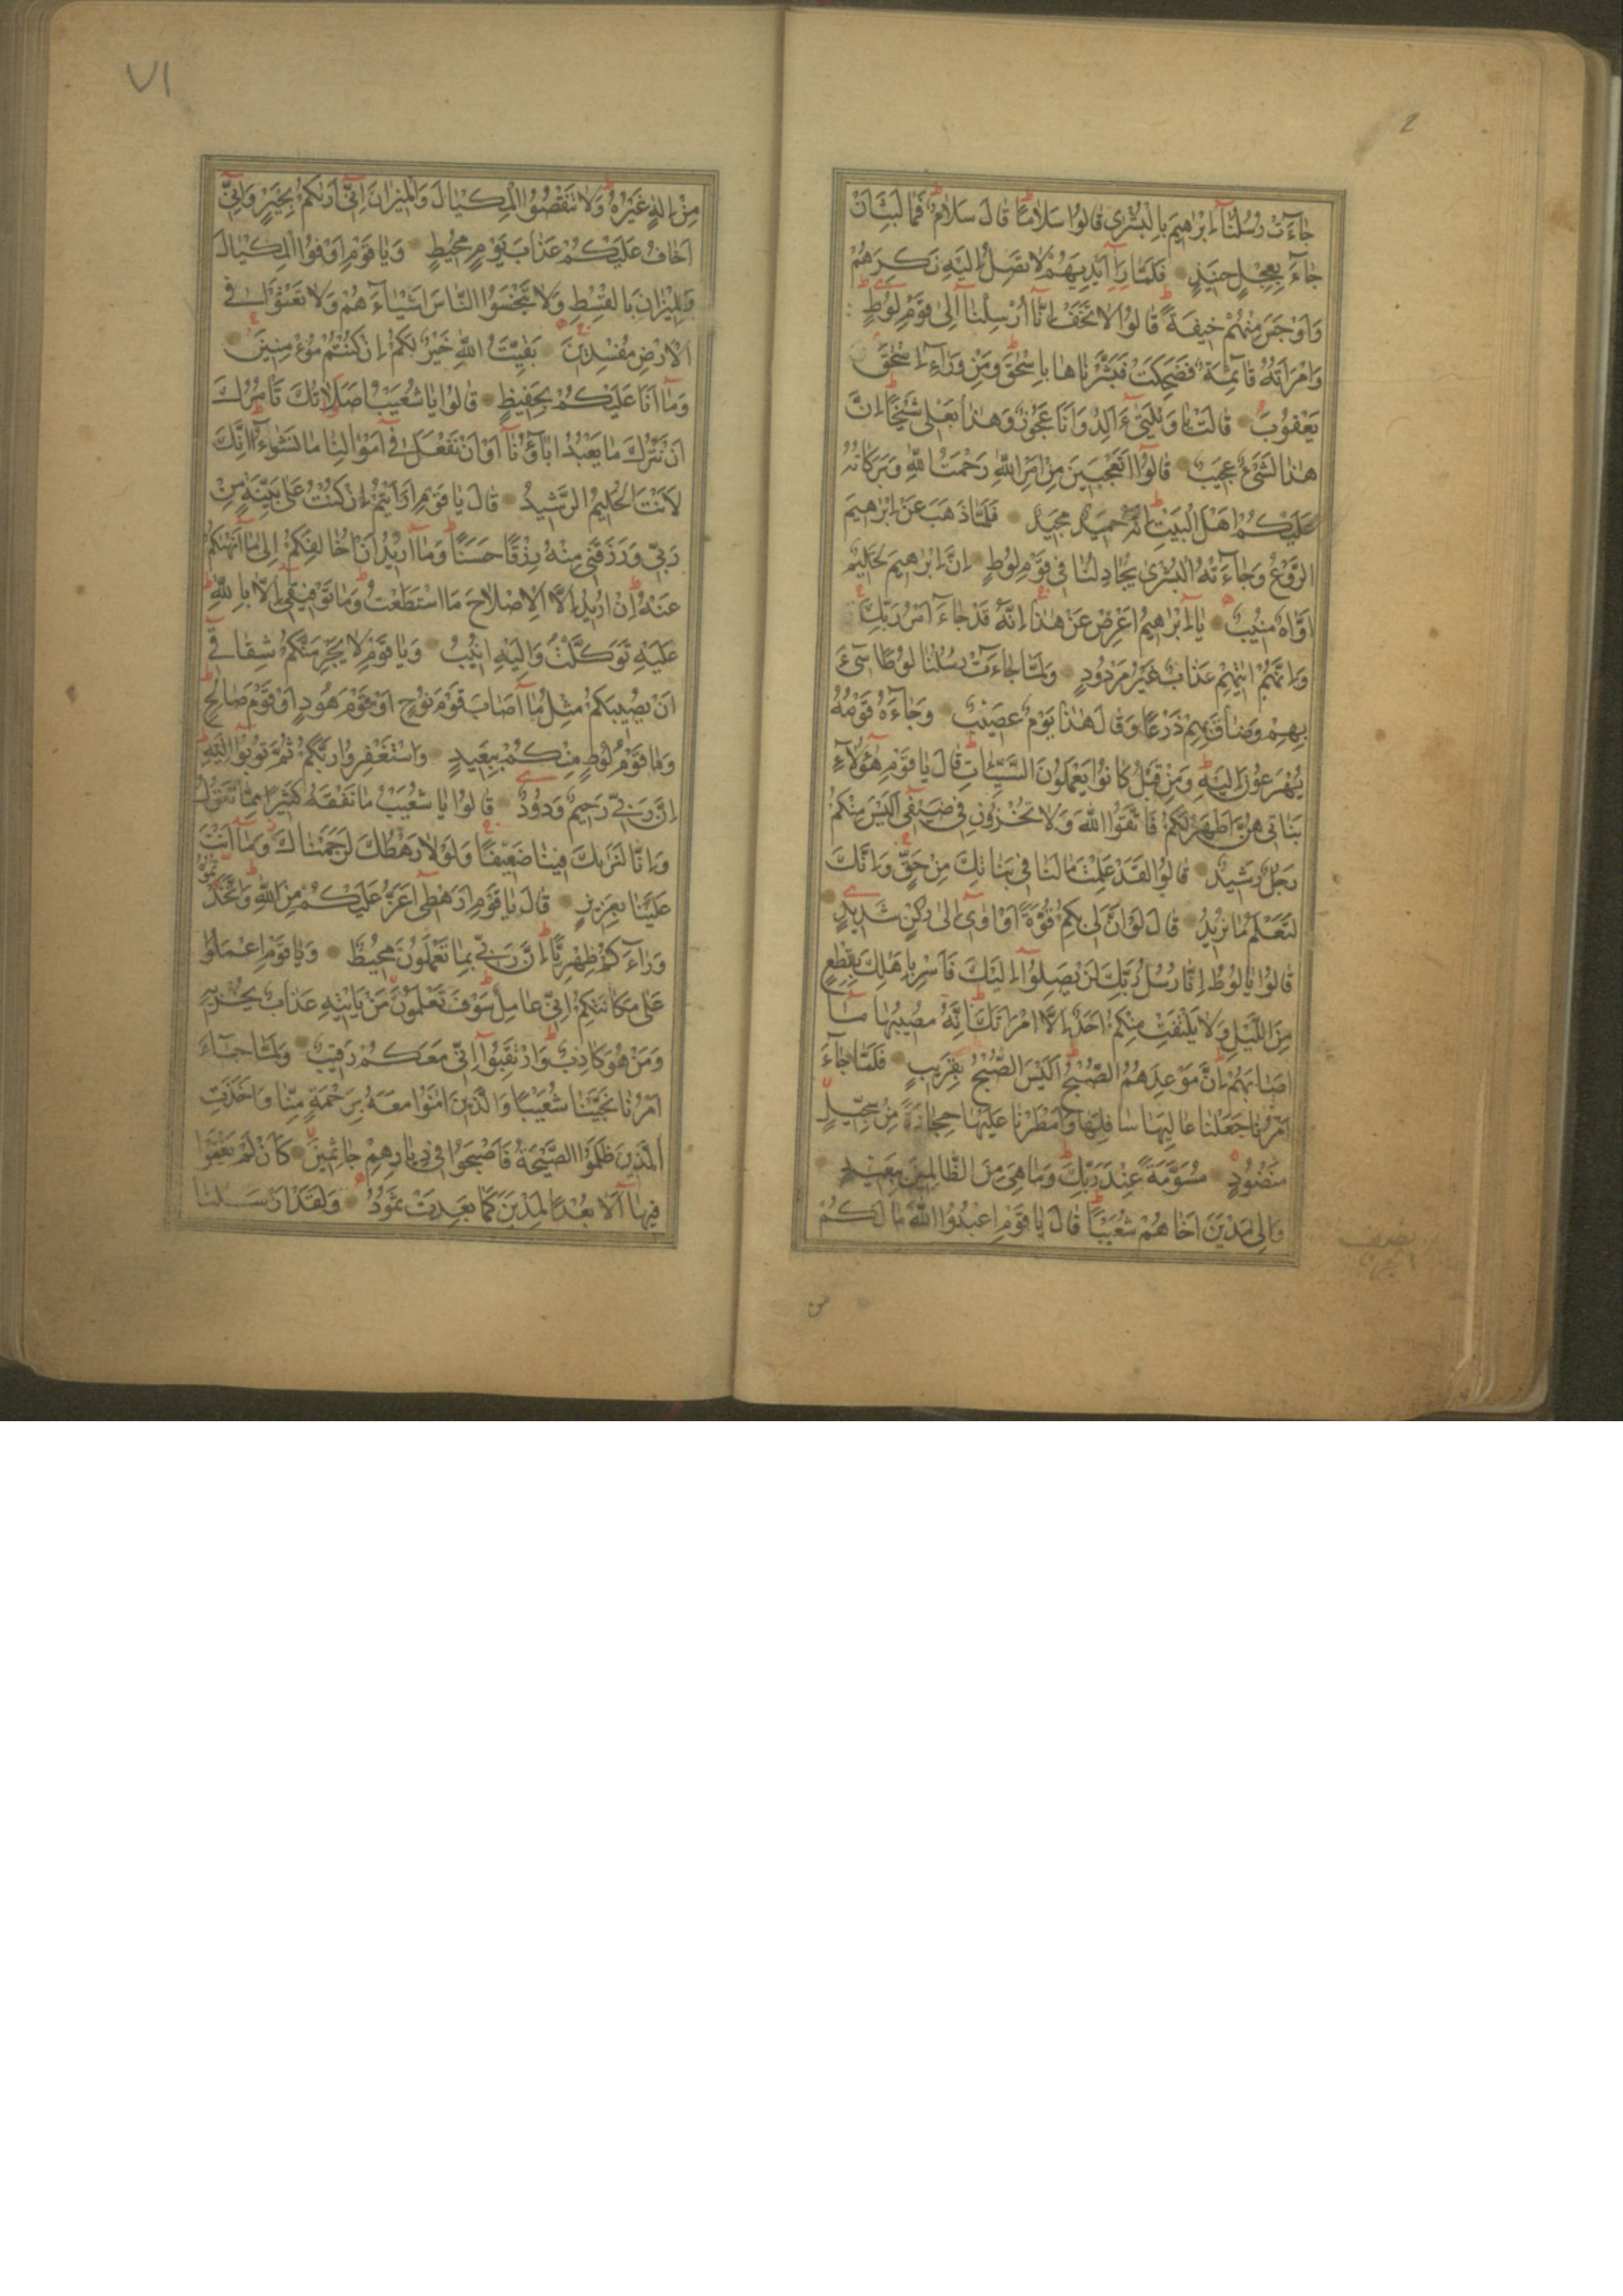 جَاءَتْ رُسُلُنَا إِبْرٰهِيمَ بِالْبُشْرٰى قَالُوا سَلَامًا قَالَ سَلَامٌ فَمَا لَبِثَ أَنْ
جَاءَ بِعِجْلٍ حَنِيذٍ فَلَمَّا رَاٰ أَيْدِيَهُمْ لَا تَصِلُ إِلَيْهِ نَكِرَهُمْ
وَأَوْجَسَ مِنْهُمْ خِيفَةً قَالُوا لَا تَخَفْ إِنَّا أُرْسِلْنَا إِلٰى قَوْمِ لُوطٍ
وَامْرَأَتُهُ قَائِمَةٌ فَضَحِكَتْ فَبَشَّرْنَاهَا بِإِسْحٰقَ وَمِنْ وَرَاءِ إِسْحٰقَ
يَعْقُوبَ قَالَتْ يَا وَيْلَتٰى ءَأَلِدُ وَأَنَا عَجُوزٌ وَهٰذَا بَعْلِى شَيْخًا إِنَّ
هٰذَا لَشَىْءٌ عَجِيبٌ قَالُوا أَتَعْجَبِينَ مِنْ أَمْرِ اللّٰهِ رَحْمَتُ اللّٰهِ وَبَرَكَاتُهُ
عَلَيْكُمْ أَهْلَ الْبَيْتِ إِنَّهُ حَمِيدٌ مَجِيدٌ فَلَمَّا ذَهَبَ عَنْ إِبْرٰهِيمَ
الرَّوْعُ وَجَاءَتْهُ الْبُشْرٰى يُجَادِلُنَا فِى قَوْمِ لُوطٍ إِنَّ إِبْرٰهِيمَ لَحَلِيمٌ
أَوَّاهٌ مُنِيبٌ يَا إِبْرٰهِيمُ أَعْرِضْ عَنْ هٰذَا إِنَّهُ قَدْ جَاءَ أَمْرُ رَبِّكَ
وَإِنَّهُمْ اٰتِيهِمْ عَذَابٌ غَيْرُ مَرْدُودٍ وَلَمَّا جَاءَتْ رُسُلُنَا لُوطًا سِىءَ
بِهِمْ وَضَاقَ بِهِمْ ذَرْعًا وَقَالَ هٰذَا يَوْمٌ عَصِيبٌ وَجَاءَهُ قَوْمُهُ
يُهْرَعُونَ إِلَيْهِ وَمِنْ قَبْلُ كَانُوا يَعْمَلُونَ السَّيِّئَاتِ قَالَ يَا قَوْمِ هٰؤُلَاءِ
بَنَاتِى هُنَّ أَطْهَرُ لَكُمْ فَاتَّقُوا اللّٰهَ وَلَا تُخْزُونِ فِى ضَيْفِى أَلَيْسَ مِنْكُمْ
رَجُلٌ رَشِيدٌ قَالُوا لَقَدْ عَلِمْتَ مَا لَنَا فِى بَنَاتِكَ مِنْ حَقٍّ وَإِنَّكَ
لَتَعْلَمُ مَا نُرِيدُ قَالَ لَوْ أَنَّ لِى بِكُمْ قُوَّةً أَوْ اٰوِى إِلٰى رُكْنٍ شَدِيدٍ
قَالُوا يَا لُوطُ إِنَّا رُسُلُ رَبِّكَ لَنْ يَصِلُوا إِلَيْكَ فَأَسْرِ بِأَهْلِكَ بِقِطْعٍ
مِنَ اللَّيْلِ وَلَا يَلْتَفِتْ مِنْكُمْ أَحَدٌ إِلَّا امْرَأَتَكَ إِنَّهُ مُصِيبُهَا مَا
أَصَابَهُمْ إِنَّ مَوْعِدَهُمُ الصُّبْحُ أَلَيْسَ الصُّبْحُ بِقَرِيبٍ فَلَمَّا جَاءَ
أَمْرُنَا جَعَلْنَا عَالِيَهَا سَافِلَهَا وَأَمْطَرْنَا عَلَيْهَا حِجَارَةً مِنْ سِجِّيلٍ
مَنْضُودٍ مُسَوَّمَةً عِنْدَ رَبِّكَ وَمَا هِىَ مِنَ الظَّالِمِينَ بِبَعِيدٍ
وَإِلٰى مَدْيَنَ أَخَاهُمْ شُعَيْبًا قَالَ يَا قَوْمِ اعْبُدُوا اللّٰهَ مَا لَكُمْ
من
٧١
مِنْ إِلٰهٍ غَيْرُهُ وَلَا تَنْقُصُوا الْمِكْيَالَ وَالْمِيزَانَ إِنِّى أَرٰىكُمْ بِخَيْرٍ وَإِنِّى
أَخَافُ عَلَيْكُمْ عَذَابَ يَوْمٍ مُحِيطٍ وَيَا قَوْمِ أَوْفُوا الْمِكْيَالَ
وَالْمِيزَانَ بِالْقِسْطِ وَلَا تَبْخَسُوا النَّاسَ أَشْيَاءَهُمْ وَلَا تَعْثَوْا فِى
الْأَرْضِ مُفْسِدِينَ بَقِيَّتُ اللّٰهِ خَيْرٌ لَكُمْ إِنْ كُنْتُمْ مُؤْمِنِينَ
وَمَا أَنَا عَلَيْكُمْ بِحَفِيظٍ قَالُوا يَا شُعَيْبُ أَصَلَاتُكَ تَأْمُرُكَ
أَنْ نَتْرُكَ مَا يَعْبُدُ اٰبَاؤُنَا أَوْ أَنْ نَفْعَلَ فِى أَمْوَالِنَا مَا نَشٰؤُا إِنَّكَ
لَأَنْتَ الْحَلِيمُ الرَّشِيدُ قَالَ يَا قَوْمِ أَرَأَيْتُمْ إِنْ كُنْتُ عَلٰى بَيِّنَةٍ مِنْ
رَبِّى وَرَزَقَنِى مِنْهُ رِزْقًا حَسَنًا وَمَا أُرِيدُ أَنْ أُخَالِفَكُمْ إِلٰى مَا أَنْهٰىكُمْ
عَنْهُ إِنْ أُرِيدُ إِلَّا الْإِصْلَاحَ مَا اسْتَطَعْتُ وَمَا تَوْفِيقِى إِلَّا بِاللّٰهِ
عَلَيْهِ تَوَكَّلْتُ وَإِلَيْهِ أُنِيبُ وَيَا قَوْمِ لَا يَجْرِمَنَّكُمْ شِقَاقِى
أَنْ يُصِيبَكُمْ مِثْلُ مَا أَصَابَ قَوْمَ نُوحٍ أَوْ قَوْمَ هُودٍ أَوْ قَوْمَ صَالِحٍ
وَمَا قَوْمُ لُوطٍ مِنْكُمْ بِبَعِيدٍ وَاسْتَغْفِرُوا رَبَّكُمْ ثُمَّ تُوبُوا إِلَيْهِ
إِنَّ رَبِّى رَحِيمٌ وَدُودٌ قَالُوا يَا شُعَيْبُ مَا نَفْقَهُ كَثِيرًا مِمَّا تَقُولُ
وَإِنَّا لَنَرٰىكَ فِينَا ضَعِيفًا وَلَوْلَا رَهْطُكَ لَرَجَمْنَاكَ وَمَا أَنْتَ
عَلَيْنَا بِعَزِيزٍ قَالَ يَا قَوْمِ أَرَهْطِى أَعَزُّ عَلَيْكُمْ مِنَ اللّٰهِ وَاتَّخَذْتُمُوهُ
وَرَاءَكُمْ ظِهْرِيًّا إِنَّ رَبِّى بِمَا تَعْمَلُونَ مُحِيطٌ وَيَا قَوْمِ اعْمَلُوا
عَلٰى مَكَانَتِكُمْ إِنِّى عَامِلٌ سَوْفَ تَعْلَمُونَ مَنْ يَأْتِيهِ عَذَابٌ يُخْزِيهِ
وَمَنْ هُوَ كَاذِبٌ وَارْتَقِبُوا إِنِّى مَعَكُمْ رَقِيبٌ وَلَمَّا جَاءَ
أَمْرُنَا نَجَّيْنَا شُعَيْبًا وَالَّذِينَ اٰمَنُوا مَعَهُ بِرَحْمَةٍ مِنَّا وَأَخَذَتِ
الَّذِينَ ظَلَمُوا الصَّيْحَةُ فَأَصْبَحُوا فِى دِيَارِهِمْ جَاثِمِينَ كَأَنْ لَمْ يَغْنَوْا
فِيهَا أَلَا بُعْدًا لِمَدْيَنَ كَمَا بَعِدَتْ ثَمُودُ وَلَقَدْ أَرْسَلْنَا